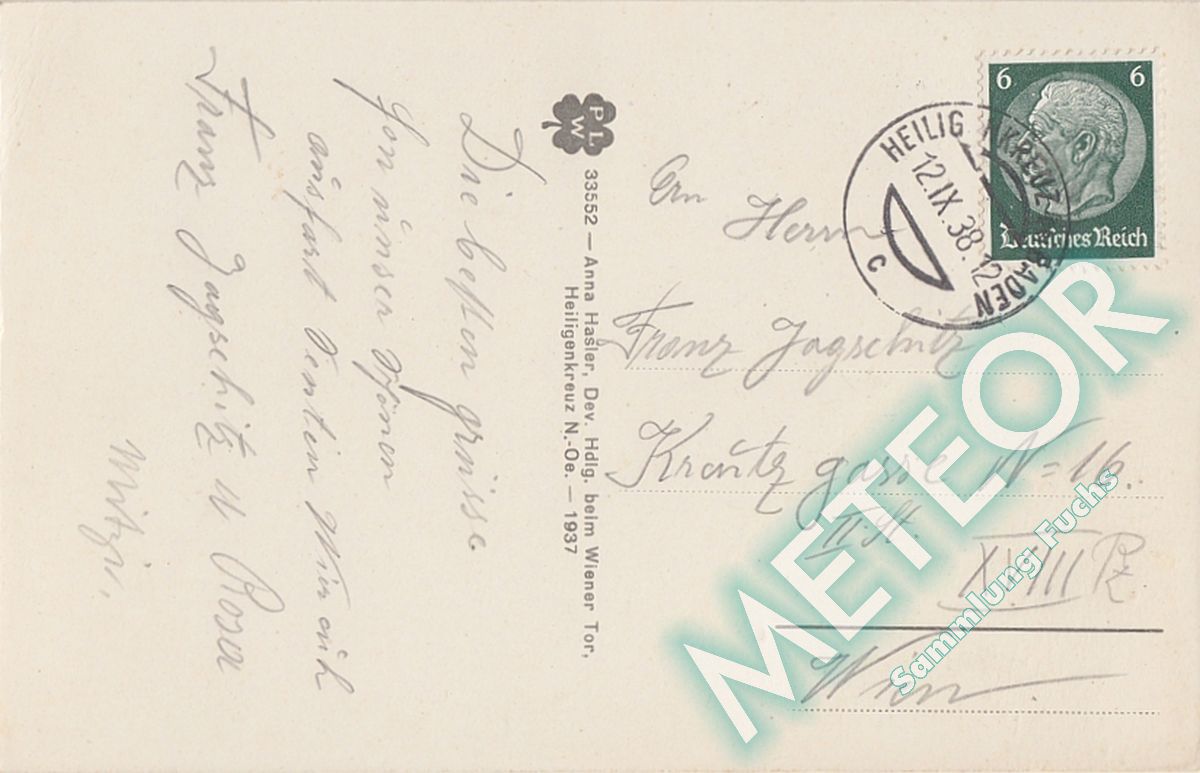 Die besten grüsse
fon unser schönen
ausfart senden wir euch
Franz Jagschitz u Rosa
Mitzi.
P L W
33552 — Anna Hasler, Dev. Hdlg. beim Wiener Tor,
Heiligenkreuz N.-Oe. — 1937
6 6
Deutsches Reich
HEILIGENKREUZ BADEN
12.IX.38.12
c
An
Herrn
Franz Jagschitz
Kreutzgasse N=16.
II. St.
XVIII Bz
Wien
METEOR
Sammlung Fuchs